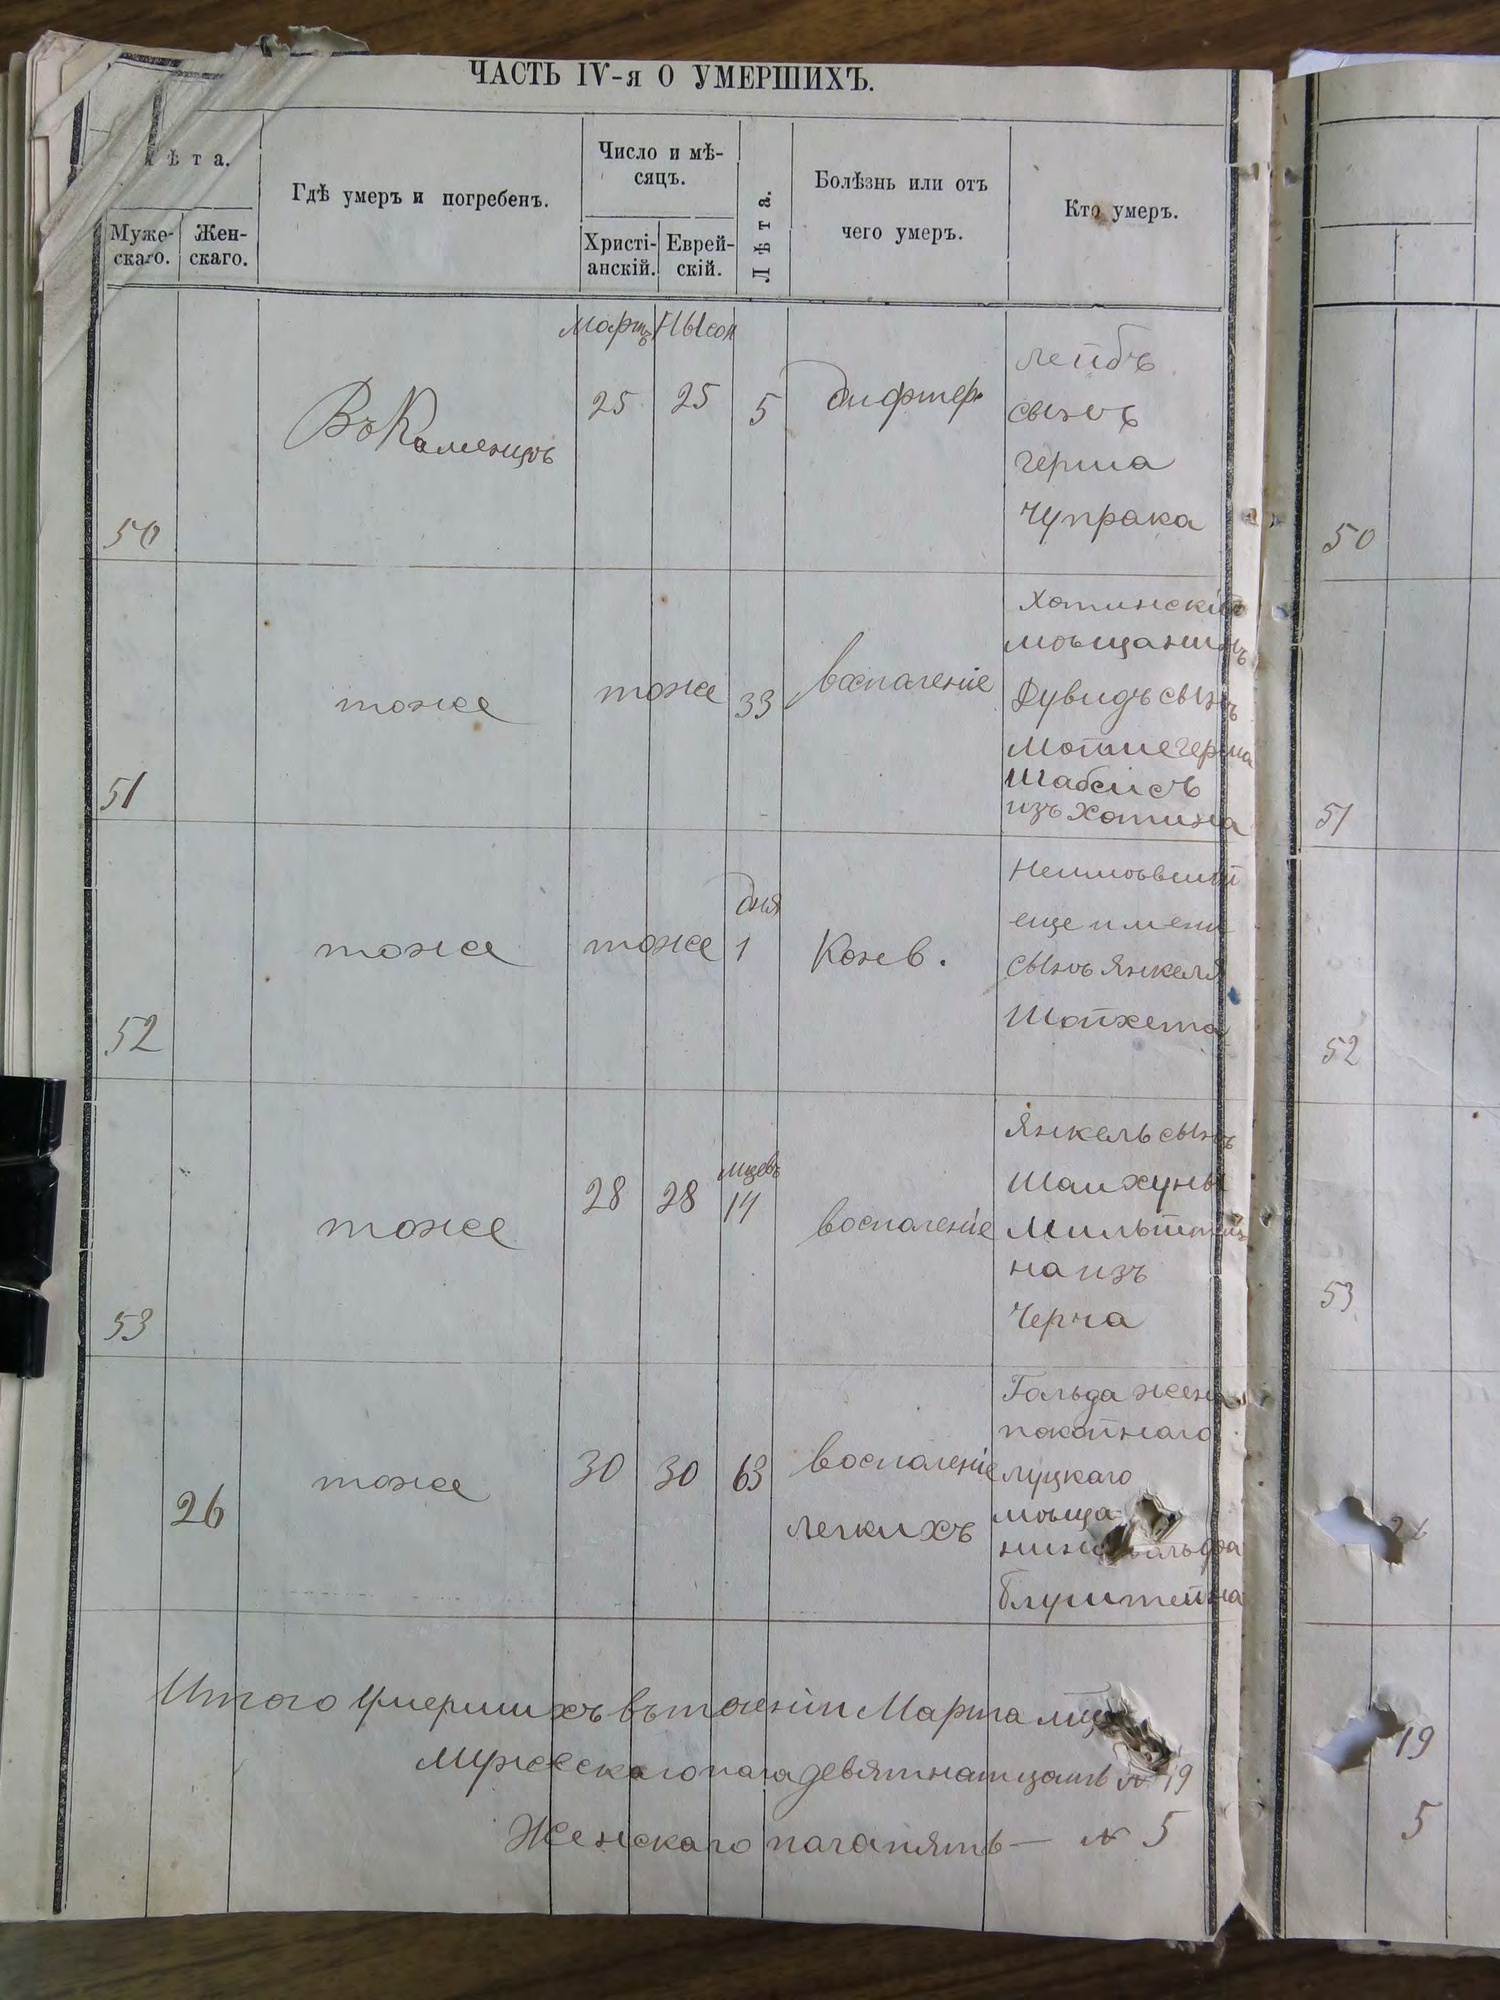 ЧАСТЬ IV-я О УМЕРШИХЪ.
ѣта.
Муже-
скаго.
Жен-
скаго.
Гдѣ умеръ и погребенъ.
Число и мѣ-
сяцъ.
Христі-
анскій.
Еврей-
скій.
Лѣта.
Болѣзнь или отъ
чего умеръ.
Кто умеръ.
50
Въ Каменцѣ
Мартъ
25
Нысон
25
5
дифтер.
Лейбъ
сынъ
Герша
Чупрака
50
51
тоже
тоже
33
воспаленіе
Хотинскій
мѣщанинъ
Дувидъ сынъ
Мотие Герша
Шабсисъ
изъ Хотина
51
52
тоже
тоже
дня
1
Конв.
Неимѣвший
еще имени
сынъ Янкеля
Шойхета
52
53
тоже
28
28
мцевъ
14
воспаленіе
Янкель сынъ
Шаихуны
Мильштей
на изъ
Черча
53
26
тоже
30
30
63
воспаленіе
легкихъ
Гольда жена
покойнаго
луцкаго
мѣща-
нина Вольфа
Блуштейна
Итого умершихъ въ теченіи Марта мца
Мужескаго пола девятнатцать № 19
Женскаго пола пять — № 5
19
5